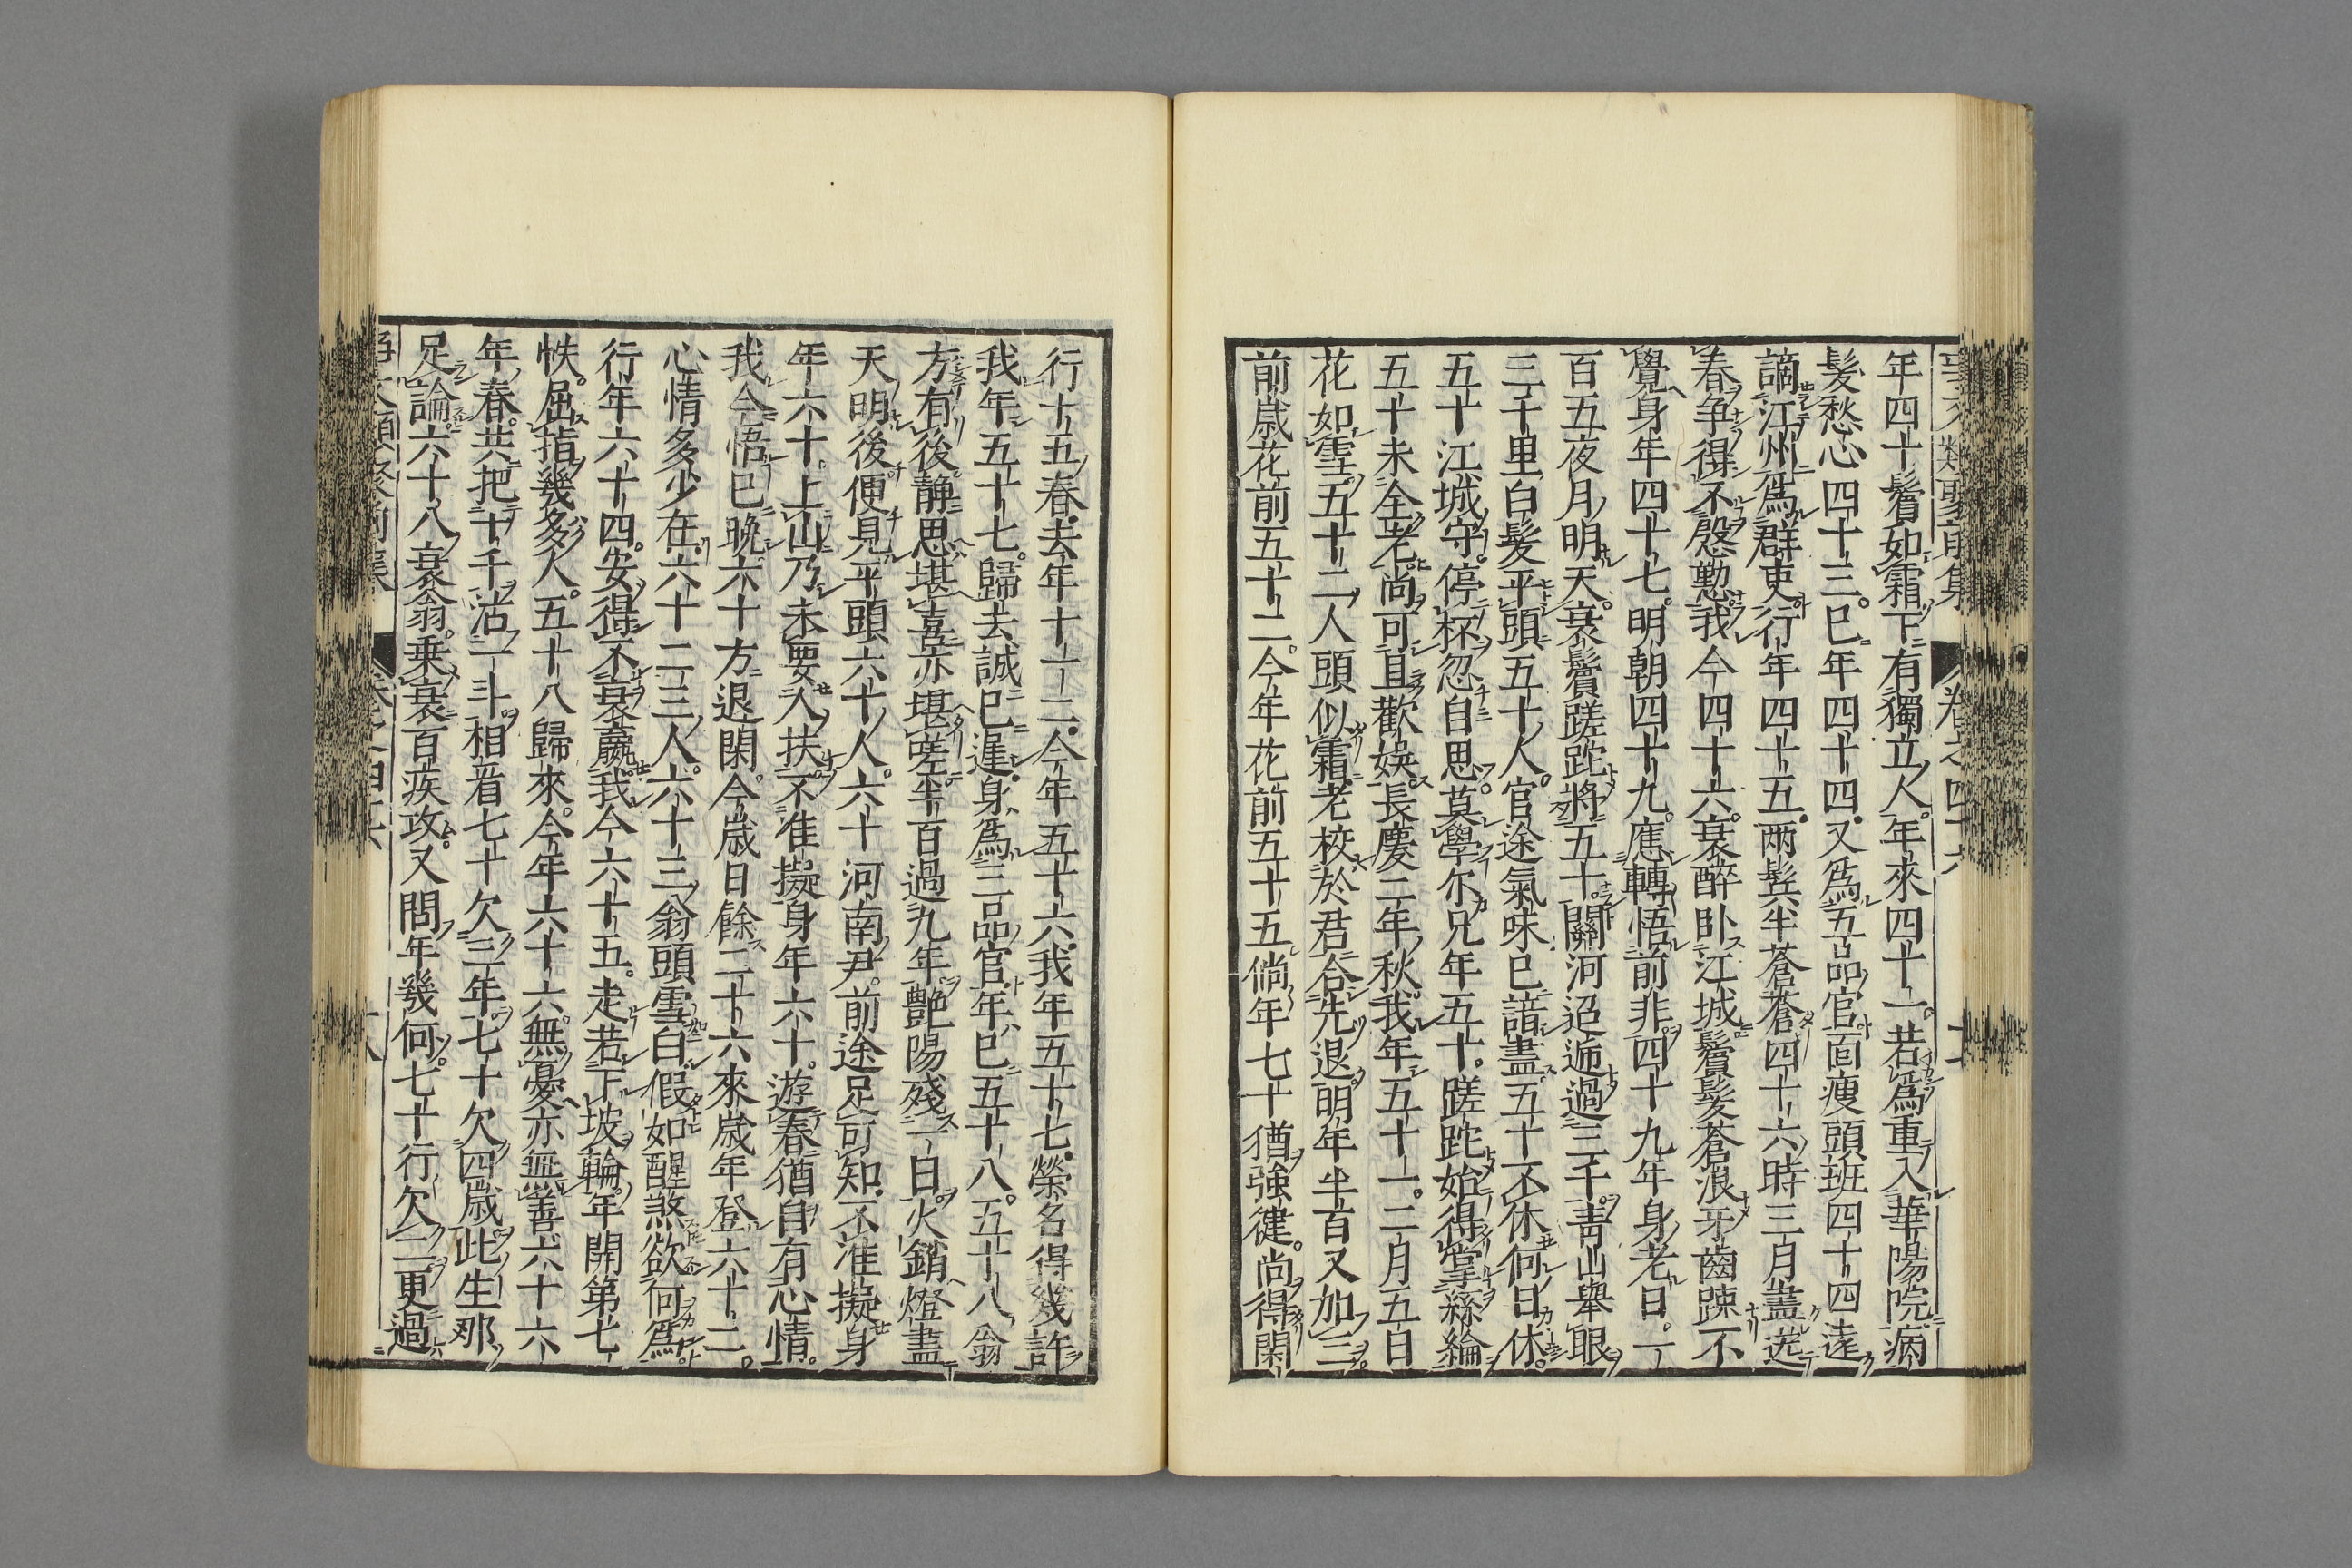 年四十鬢如霜下有獨立人。年來四十一。若爲重入華陽院病
髮愁心四十三。巳年四十四。又爲五品官面瘦頭班四十四遠
謫江州爲群吏行年四十五。兩鬂半蒼蒼四十六時三月盡送
春争得不慇懃。我今四十六。衰醉卧江城鬢髮蒼浪牙齒踈不
覺身年四十七。明朝四十九。應轉悟前非。四十九年身老日。一
百五夜月明天。衰鬢蹉跎將五十。關河迢遞過三千。靑山舉眼
三千里白髮平頭五十人。官途氣味巳諳盡五十不休何日休。
五十江城守。停杯忽自思。莫學尔兄年五十。蹉跎始得掌絲綸
五十未全老。尚可且歡娯。長慶二年秋。我年五十一。二月五日
花如雪。五十二人頭似霜。老校於君合先退。明年半百又加三。
前歳花前五十二。今年花前五十五。倘年七十猶強健。尚得閑
行十五春。去年十一二。今年五十六。我年五十七。榮名得幾許
我年五十七。歸去誠巳遲。身爲三品官。年巳五十八。五十八翁
方有後。静思堪喜亦堪嗟。半百過九年。艶陽殘一日。火銷燈盡
天明後便見平頭六十人。六十河南尹。前途足可知。不准擬身
年六十。上山乃未要人扶。不准擬身年六十。遊春猶自有心情。
我今悟巳晩六十方退閑。今歳日餘二十六來歳年登六十二。
心情多少在。六十二三人。六十三翁頭雪白。假如醒煞欲何爲。
行年六十四。安得不衰羸。我今六十五。走若下坡輪。年開第七
帙。屈指幾多人。五十八歸來。今年六十六。無憂亦無善六十六
年春。共把十千沽一斗。相看七十欠三年。七十欠四歳此生那
足論。六十八衰翁。乗衰百疾攻。又問年幾何。七十行欠二更過